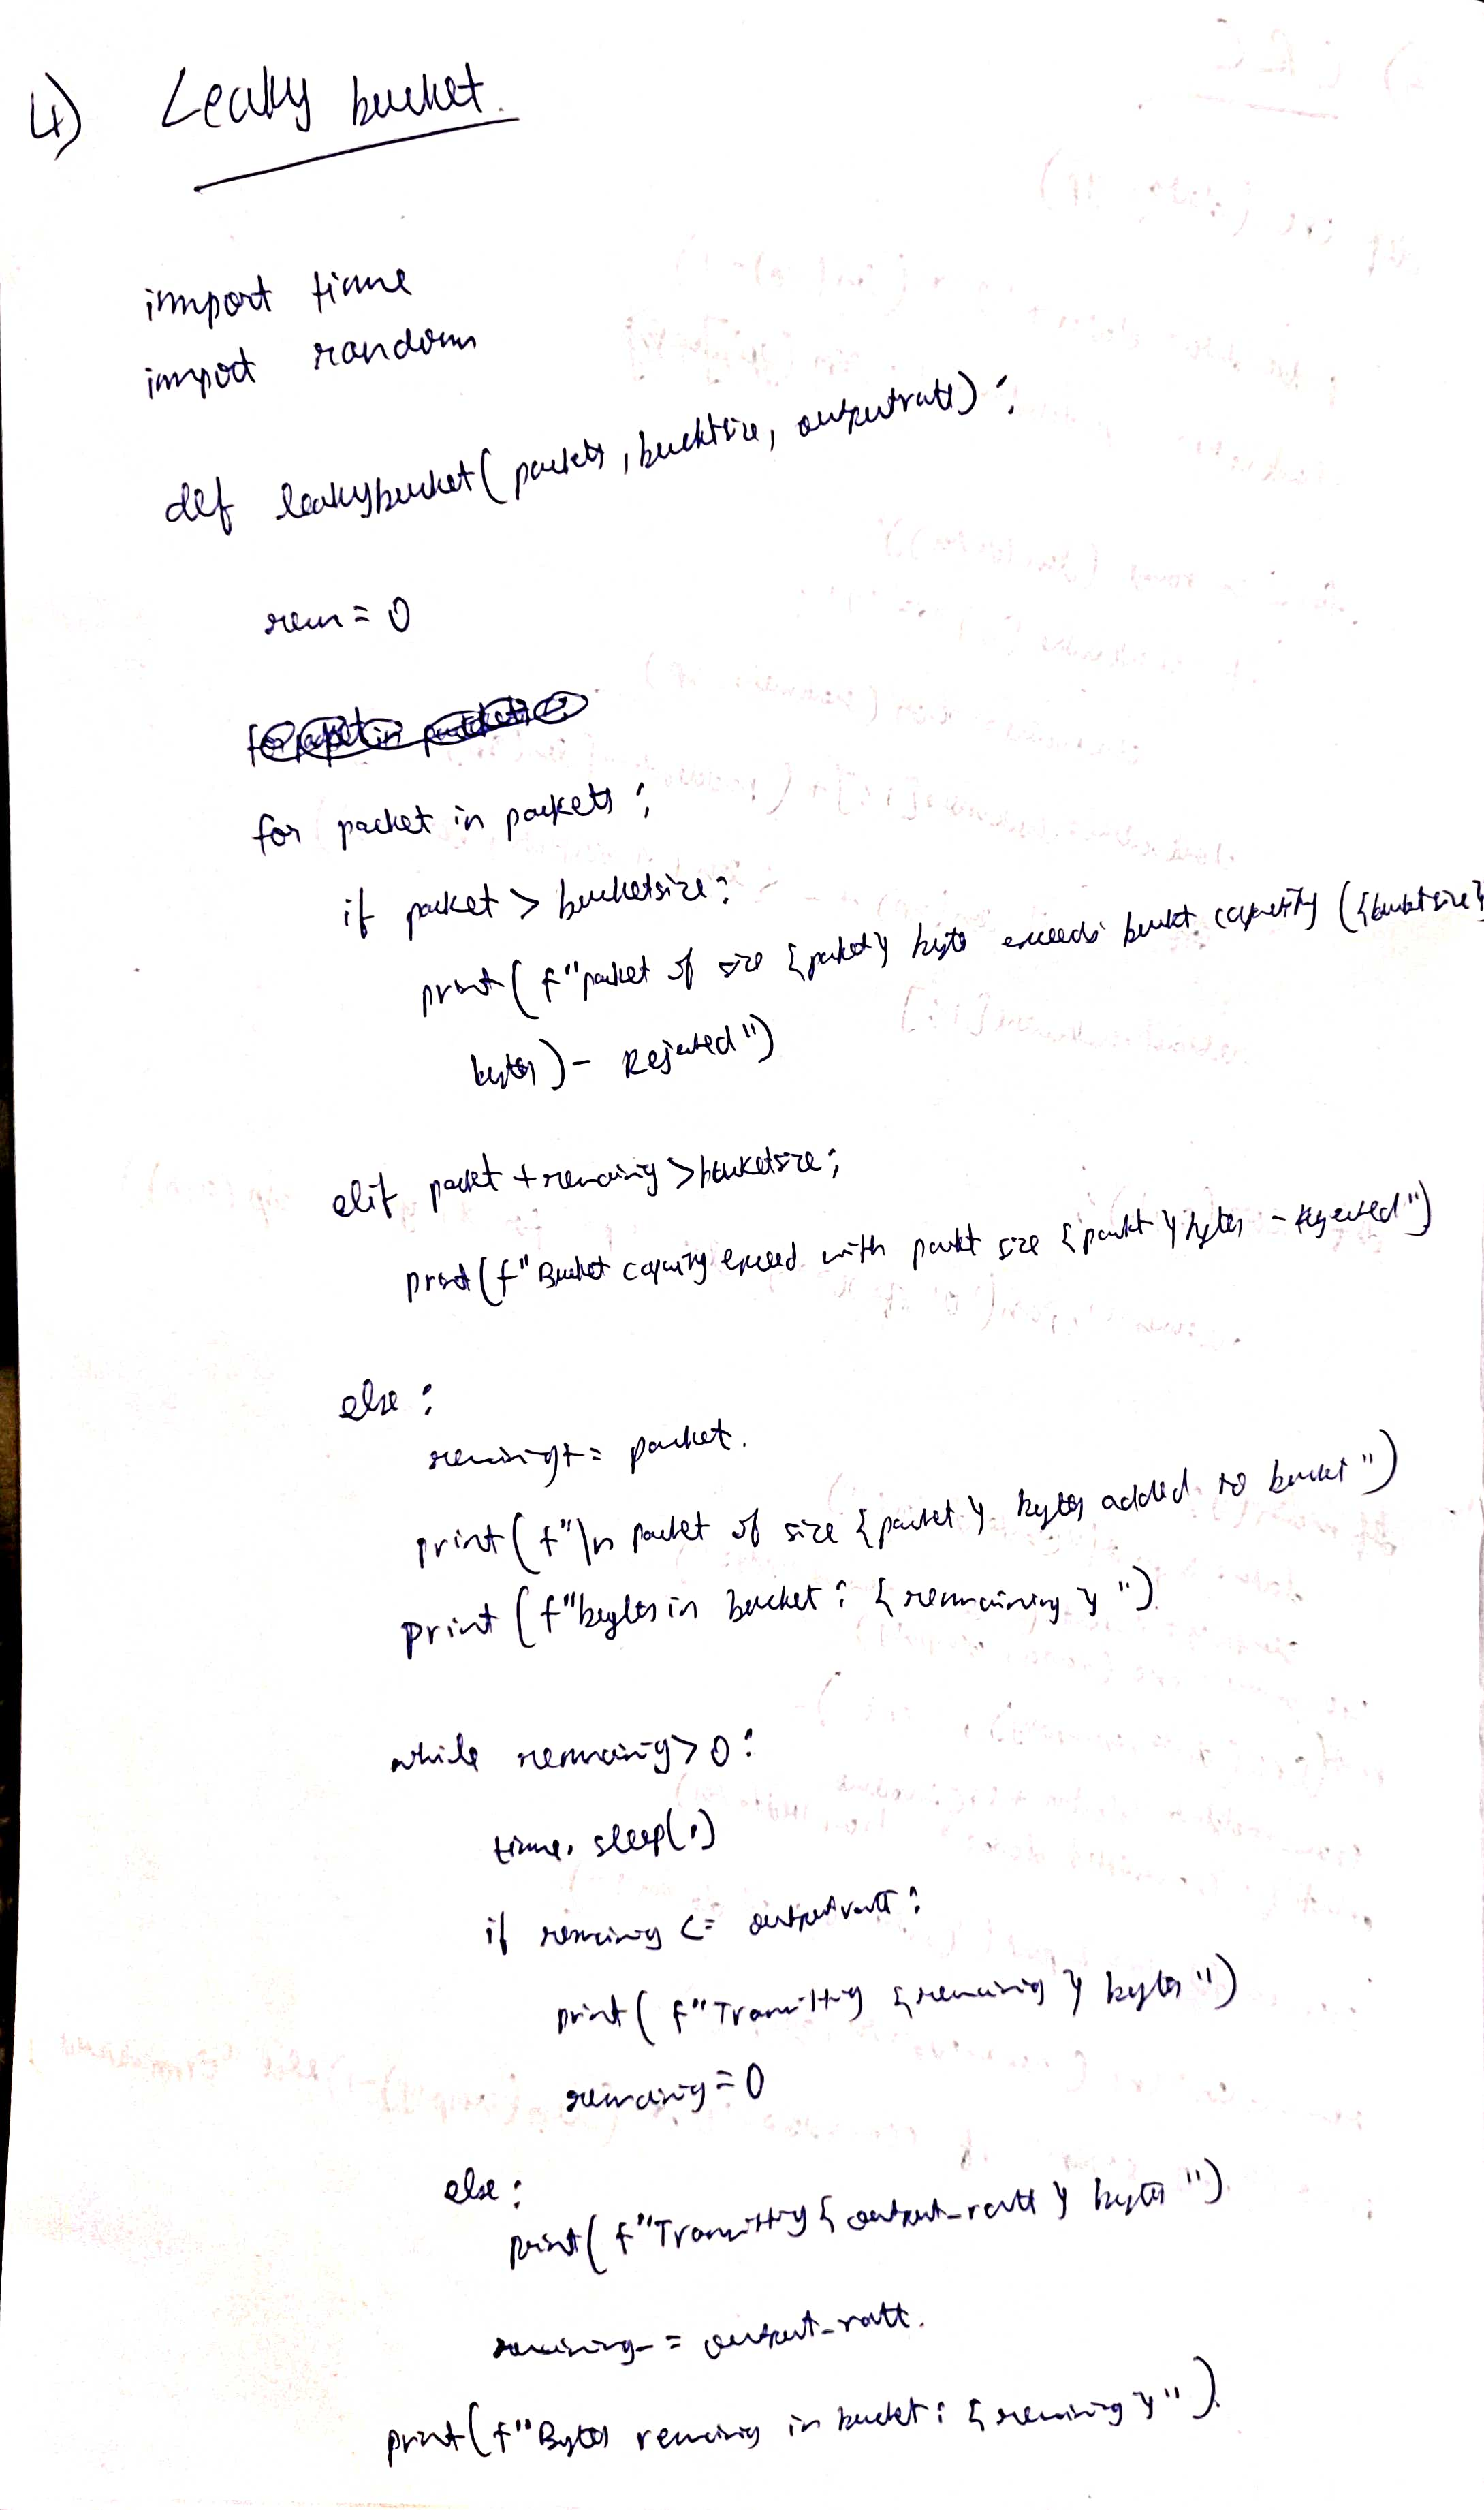 4) Leaky bucket.
import time
import random
def leakybucket(packets, bucketsize, outputrate):
rem = 0
for packet in packets:
if packet > bucketsize:
print(f"packet of size {packet} bytes exceeds bucket capacity ({bucketsize}
bytes) - Rejected")
elif packet + remaining > bucketsize:
print(f"Bucket capacity exceed with packet size {packet} bytes - Rejected")
else:
remaining += packet.
print(f"\n packet of size {packet} bytes added to bucket")
print(f"bytes in bucket: {remaining}")
while remaining > 0:
time.sleep(1)
if remaining <= outputrate:
print(f"Transmitting {remaining} bytes")
remaining = 0
else:
print(f"Transmitting {output_rate} bytes")
remaining -= output_rate.
print(f"Bytes remaining in bucket: {remaining}")